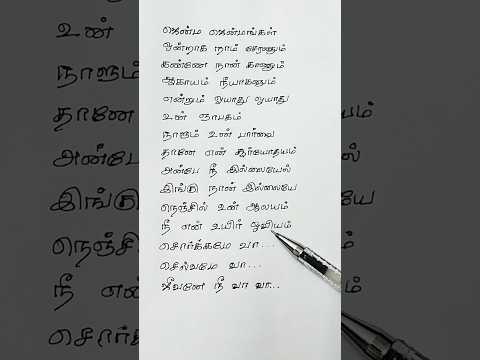 ஜென்ம ஜென்மங்கள்
ஒன்றாக நாம் சேரணும்
கண்ணே நான் காணும்
ஆகாயம் நீயாகணும்
என்றும் ஓயாது ஓயாது
உன் ஞாபகம்
நாளும் உன் பார்வை
தானே என் சூர்யோதயம்
அன்பே நீ இல்லையேல்
இங்கு நான் இல்லையே
நெஞ்சில் உன் ஆலயம்
நீ என் உயிர் ஓவியம்
சொர்க்கமே வா...
செல்வமே வா...
ஜீவனே நீ வா வா..